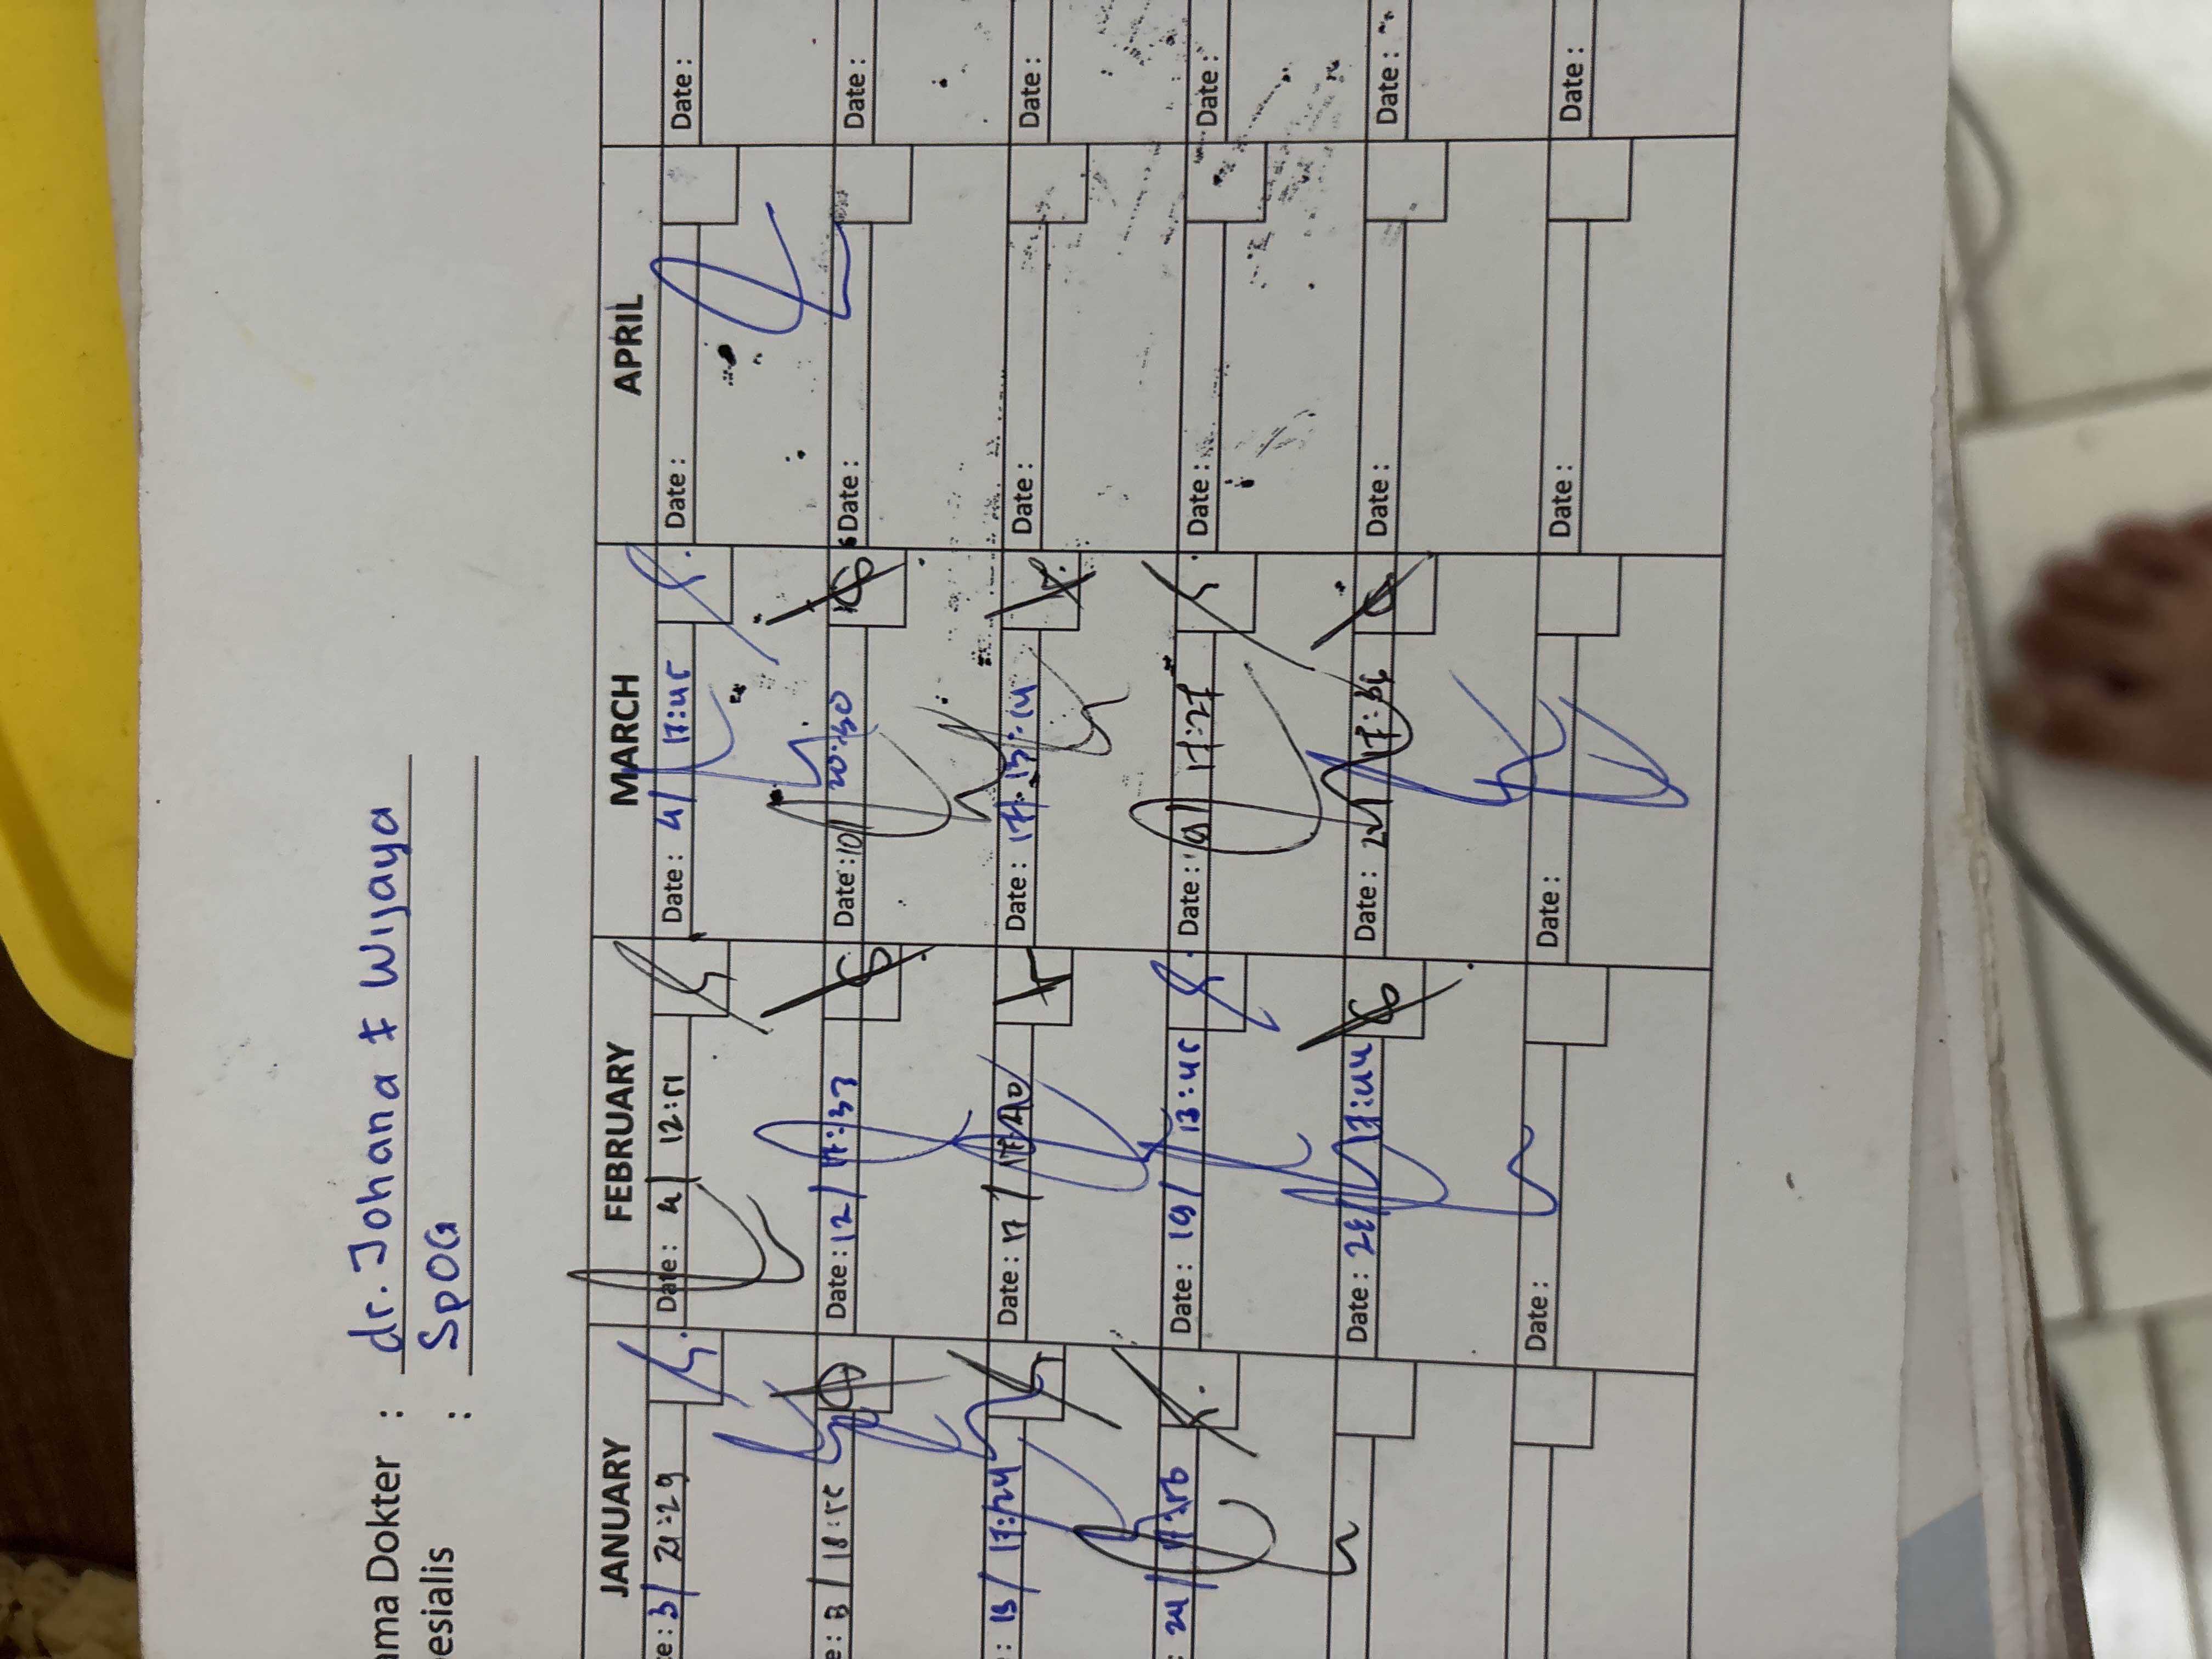 ama Dokter : dr. Johana F Wijaya
esialis : SpOG
JANUARY FEBRUARY MARCH APRIL
te: 3/ 21:29 Date: 4/ 12:51 Date: 4/ 17:45 Date: Date:
e: 8/ 18:55 Date: 12/ 17:37 Date: 10/ 20:30 Date: Date:
: 13/ 17:24 Date: 17/ 17:40 Date: 17: 13:14 Date: Date:
: 24/ Date: 19/ 13:45 Date: 19/ 17:27 Date: Date:
Date: 17:44 Date: 17:36 Date: Date:
Date: Date: Date: Date: